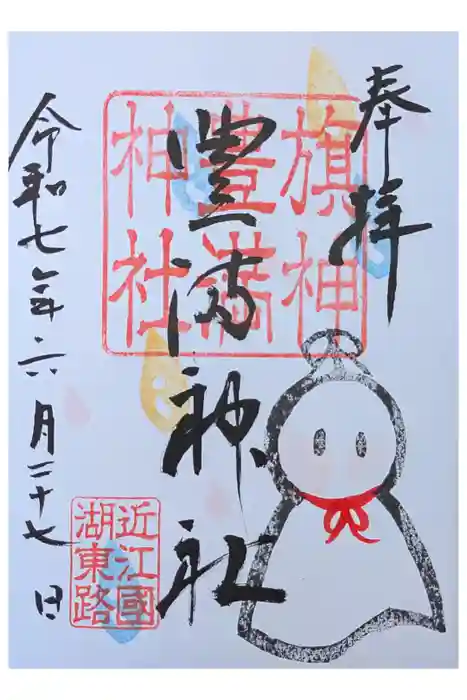 奉拝
旗神
豊満
神社
豊満神社
近江國
湖東路
令和七年六月二十七日